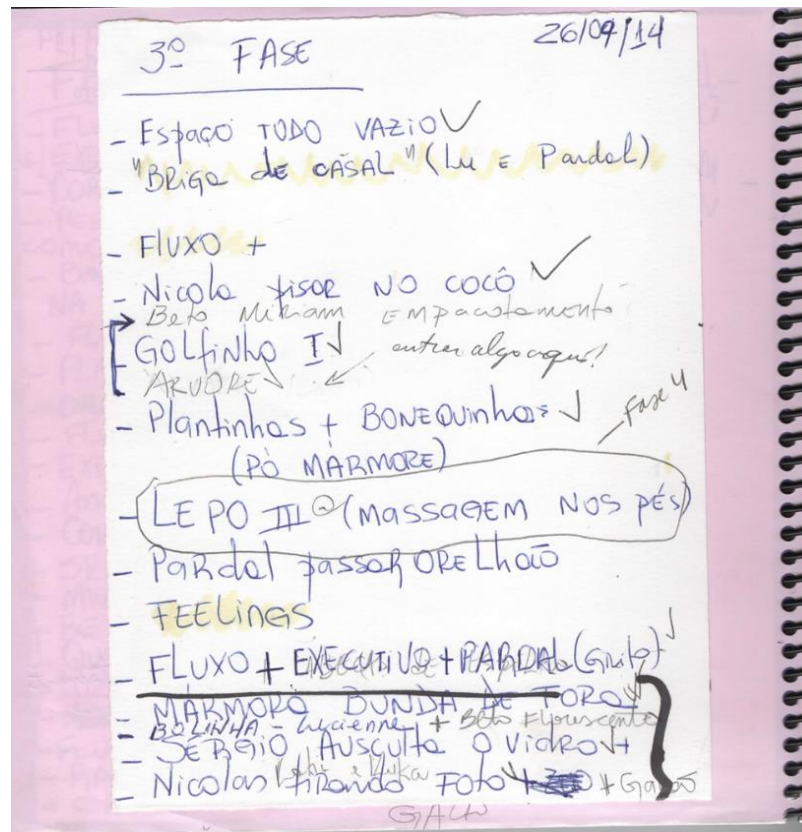 3º FASE
26/09/14
- Espaço TODO VAZIO ✓
- "BRIGA de CASAL" (Lu E Pardal)
- FLUXO +
- Nicola pisar NO COCÔ ✓
→ Beto Miriam EMPacotamento
- GOLfinho I ✓
entrar algo aqui!
ARVORE ✓
- Plantinhas + BONEQuinhas ✓
(PÒ MÁRMORE)
Fase 4
- LEPO III (MASSAGEM NOS PÉS)
- Pardal passar ORELhão
- FEELINGS
- FLUXO + EXECUTIVO + PARDAL (Grito) ✓
- MÁRMORO BUNDA DE FORA ✓
- BOLINHA - Lucienne + Beto Florescente
- SERGIO AUSCULTA O VIDRO ✓ +
- Nicolas tirando FOTO +